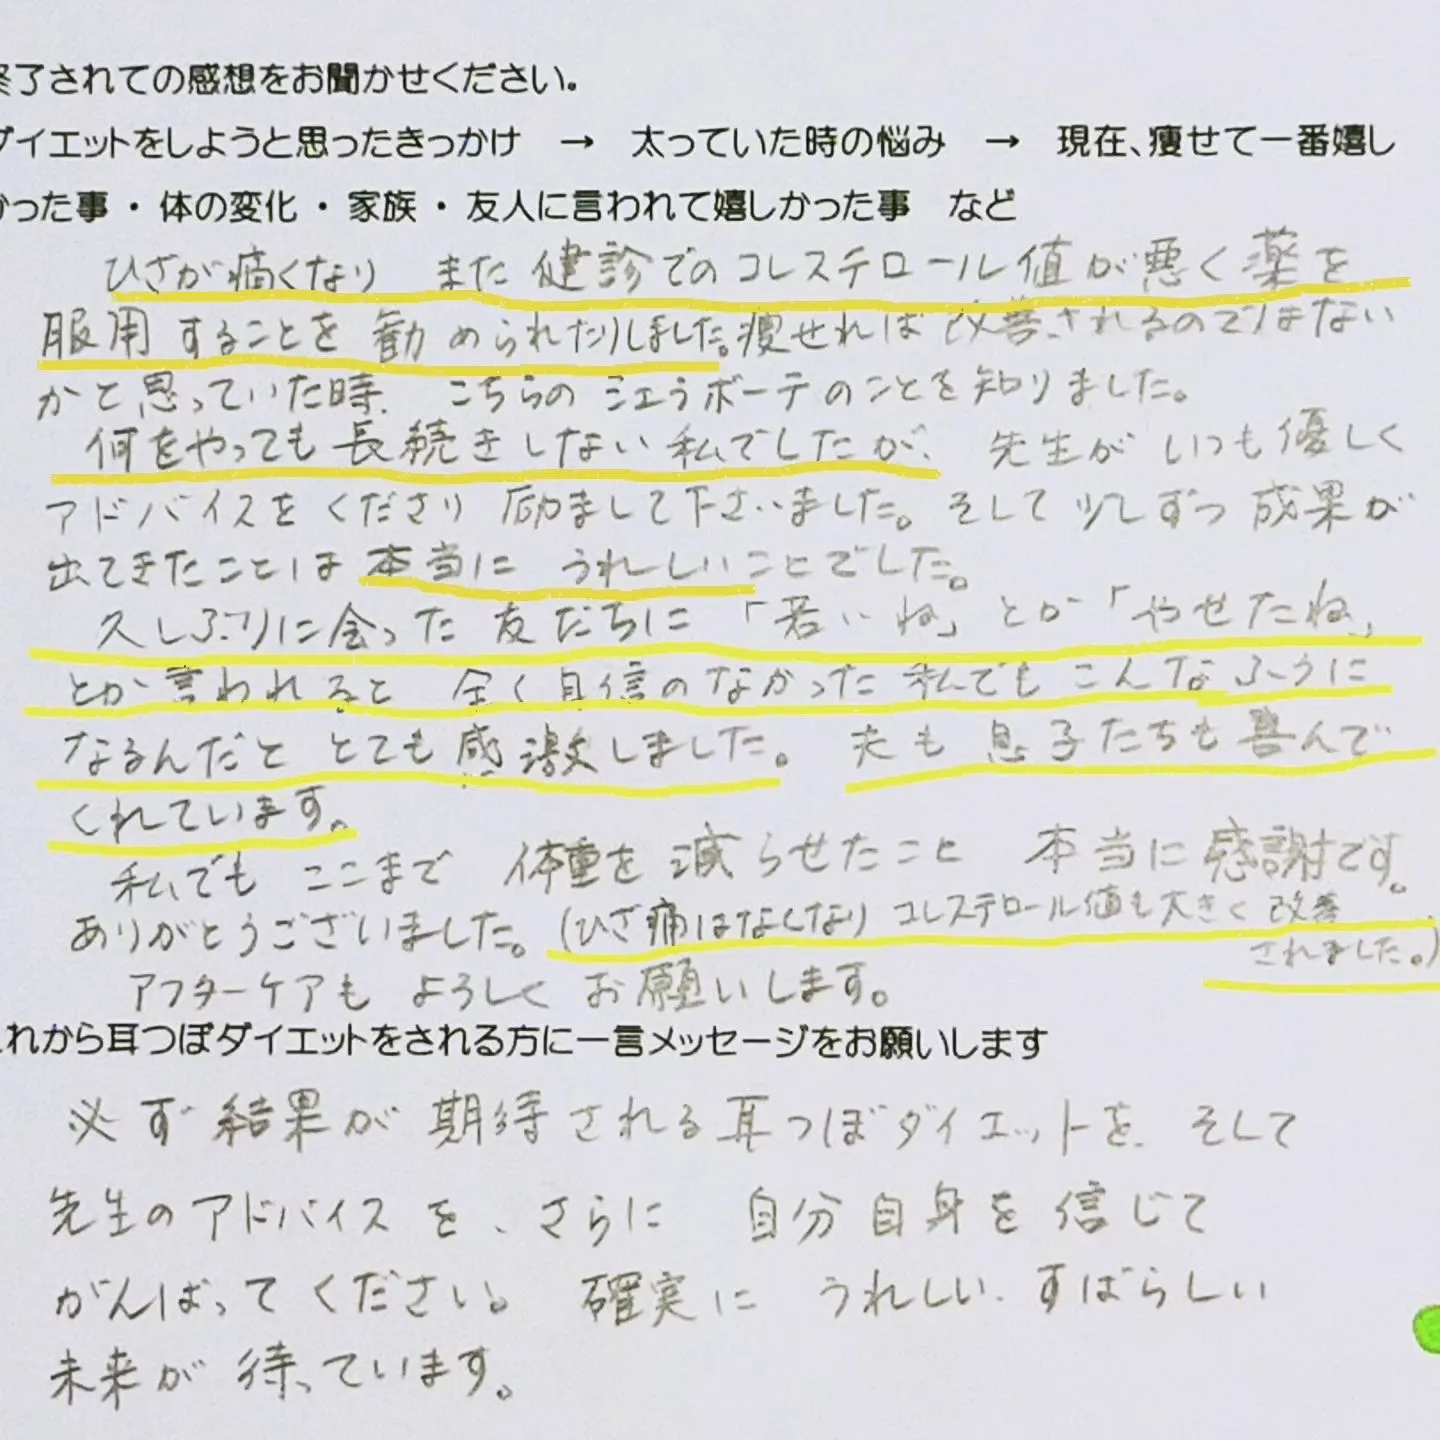 終了されての感想をお聞かせください。
ダイエットをしようと思ったきっかけ → 太っていた時の悩み → 現在、痩せて一番嬉し
かった事・体の変化・家族・友人に言われて嬉しかった事 など
ひざが痛くなり また 健診でのコレステロール値が悪く薬を
服用することを勧められたりしました。痩せれば改善されるのではない
かと思っていた時、こちらのシェラボーテのことを知りました。
何をやっても長続きしない私でしたが、先生がいつも優しく
アドバイスをくださり励まして下さいました。そして少しずつ成果が
出てきたことは本当に うれしいことでした。
久しぶりに会った友だちに「若いね」とか「やせたね」
とか言われると 全く自信のなかった私でもこんなふうに
なるんだと とても感激しました。夫も息子たちも喜んで
くれています。
私でも ここまで 体重を減らせたこと 本当に感謝です。
ありがとうございました。(ひざ痛はなくなり コレステロール値も大きく改善
されました。)
アフターケアも よろしく お願いします。
これから耳つぼダイエットをされる方に一言メッセージをお願いします
必ず結果が期待される耳つぼダイエットを、そして
先生のアドバイスを、さらに 自分自身を信じて
がんばってください。確実に うれしい、すばらしい
未来が待っています。